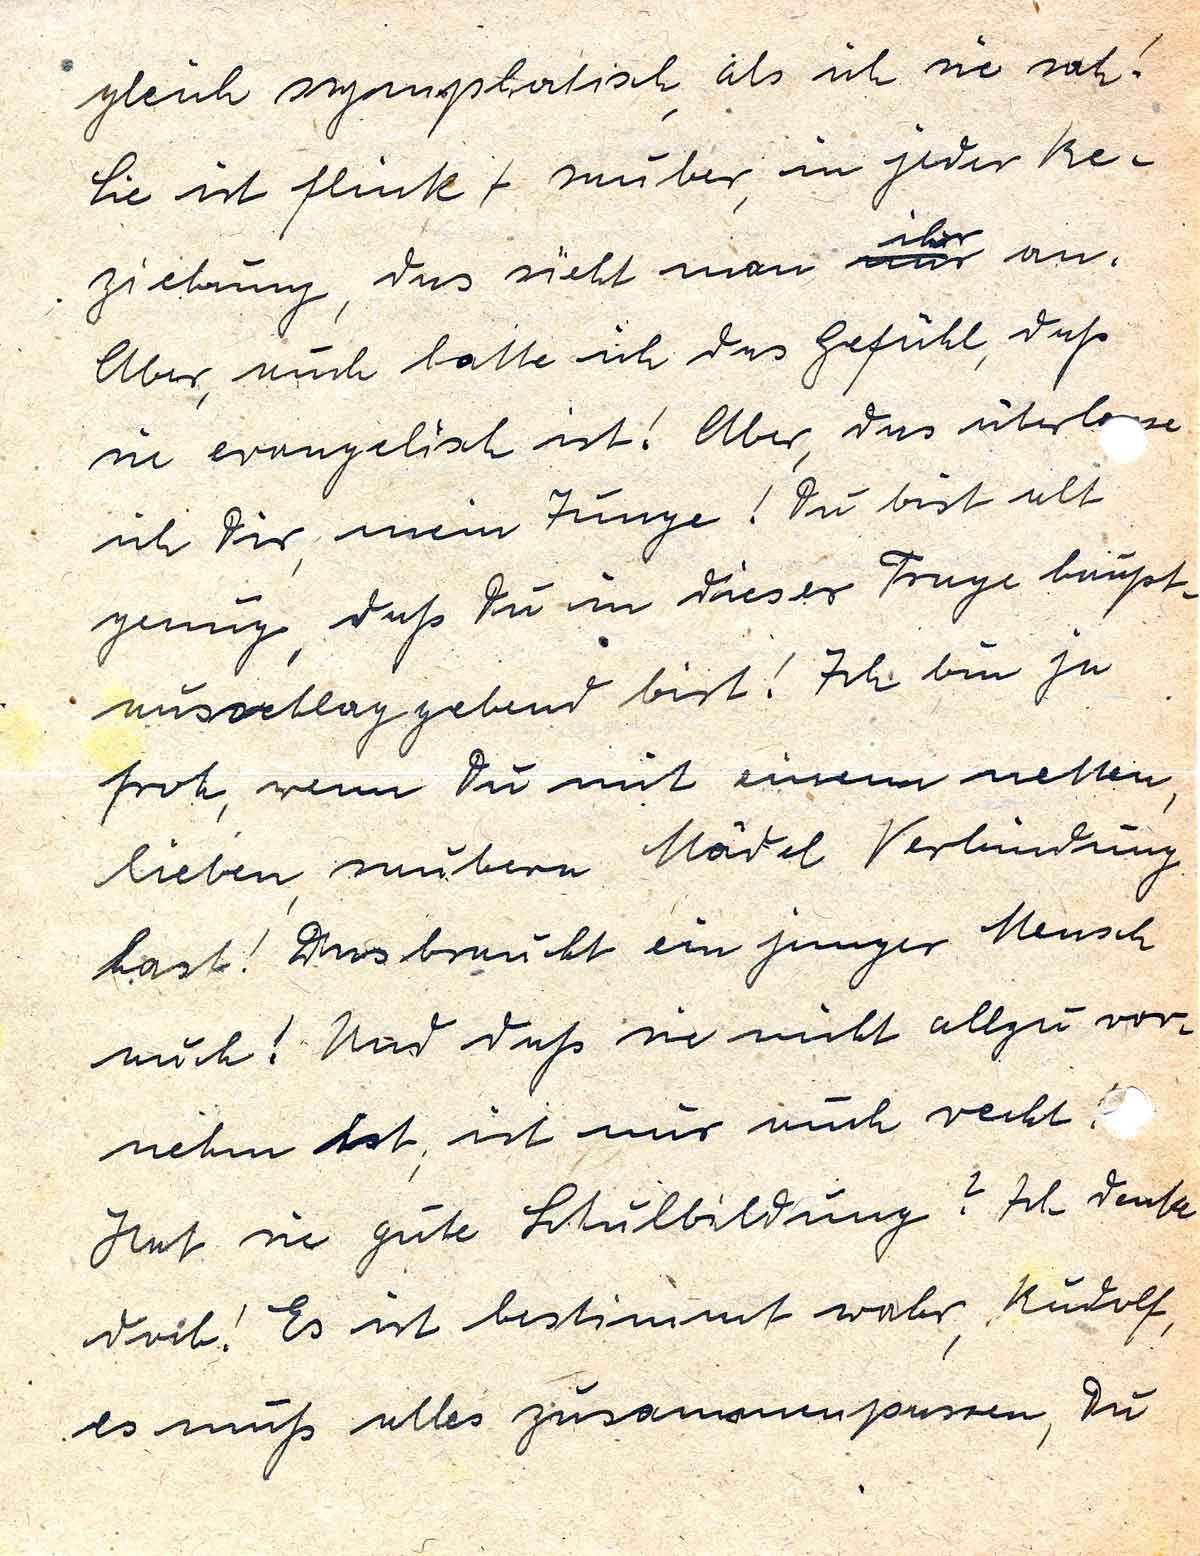 gleich symphatisch, als ich sie sah!
Sie ist flink + sauber, in jeder Be-
ziehung, das sieht man ihr an.
Aber, auch hatte ich das Gefühl, daß
sie evangelisch ist! Aber, das überlasse
ich Dir, mein Junge! Du bist alt
genug, daß Du in dieser Frage haupt-
ausschlaggebend bist! Ich bin ja
froh, wenn Du mit einem netten,
lieben, saubern Mädel Verbindung
hast! Das braucht ein junger Mensch
auch! Und daß sie nicht allzu vor-
nehm ist, ist nur auch recht!
Hat sie gute Schulbildung? Ich denke
doch! Es ist bestimmt wahr, Rudolf,
es muß alles zusammenpassen, Du